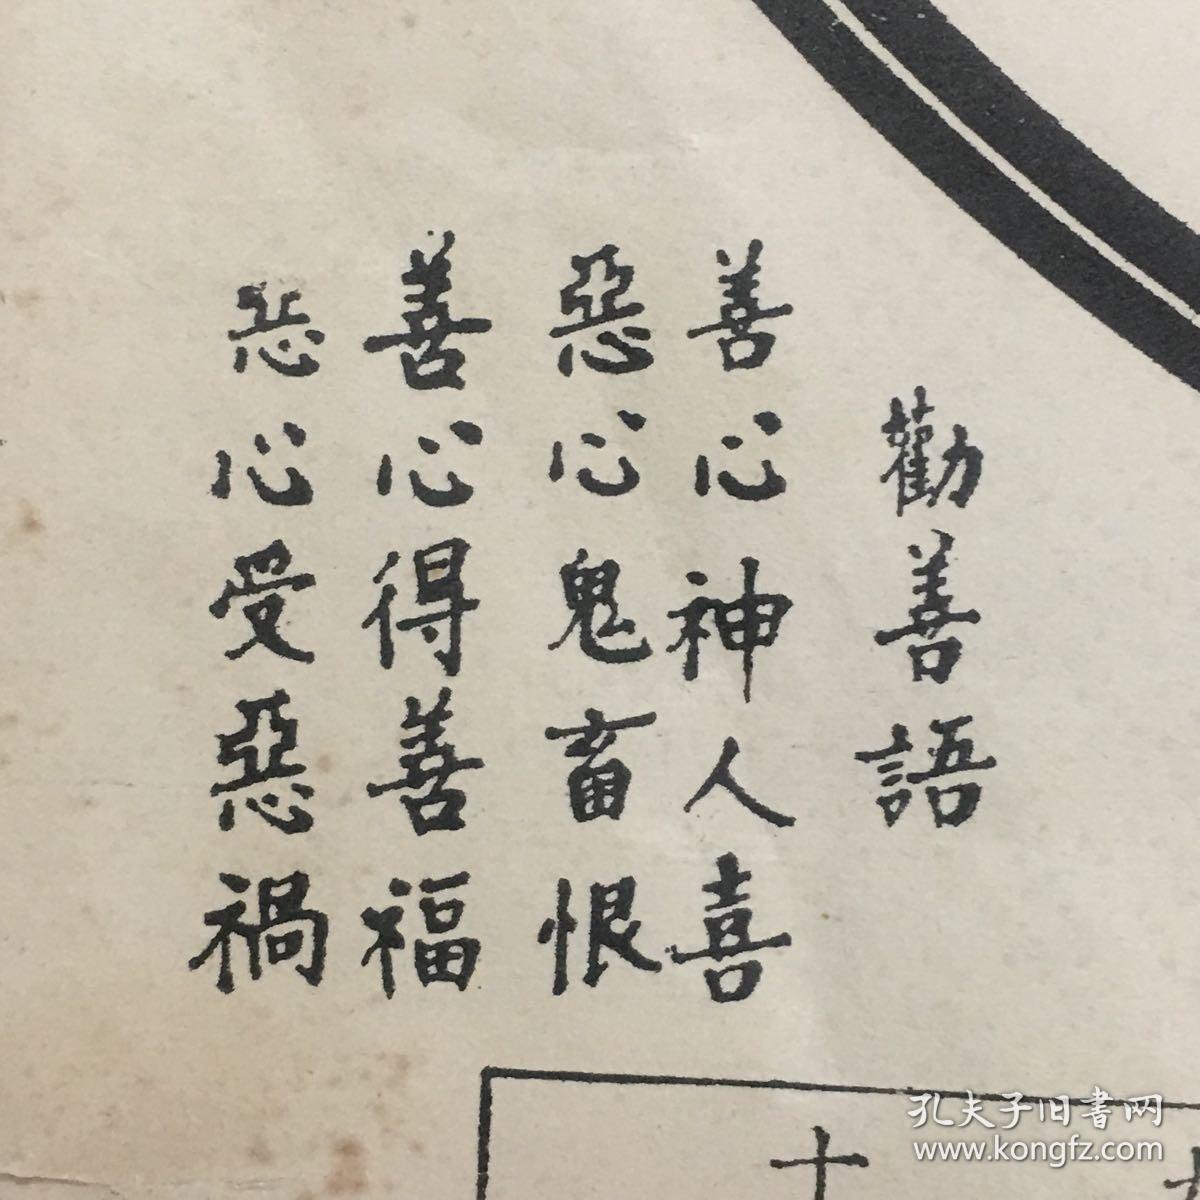 勸善語
善心神人喜
惡心鬼畜恨
善心得善福
惡心受惡禍
十
孔夫子旧書网
www.kongfz.com